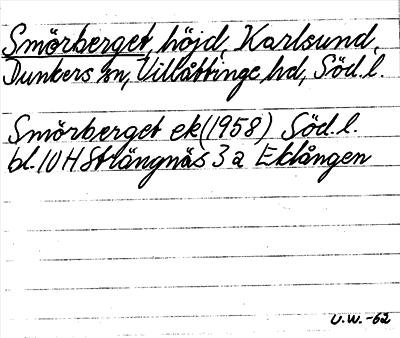 Smörberget, höjd, Karlsund,
Dunkers sn, Villåttinge hd, Söd.l.
Smörberget ek(1958) Söd.l.
bl. 10H Strängnäs 3a Eklången
U.W.-62